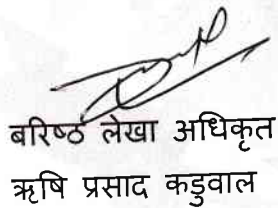 बरिष्ठ लेखा अधिकृत
ऋषि प्रसाद कडुवाल